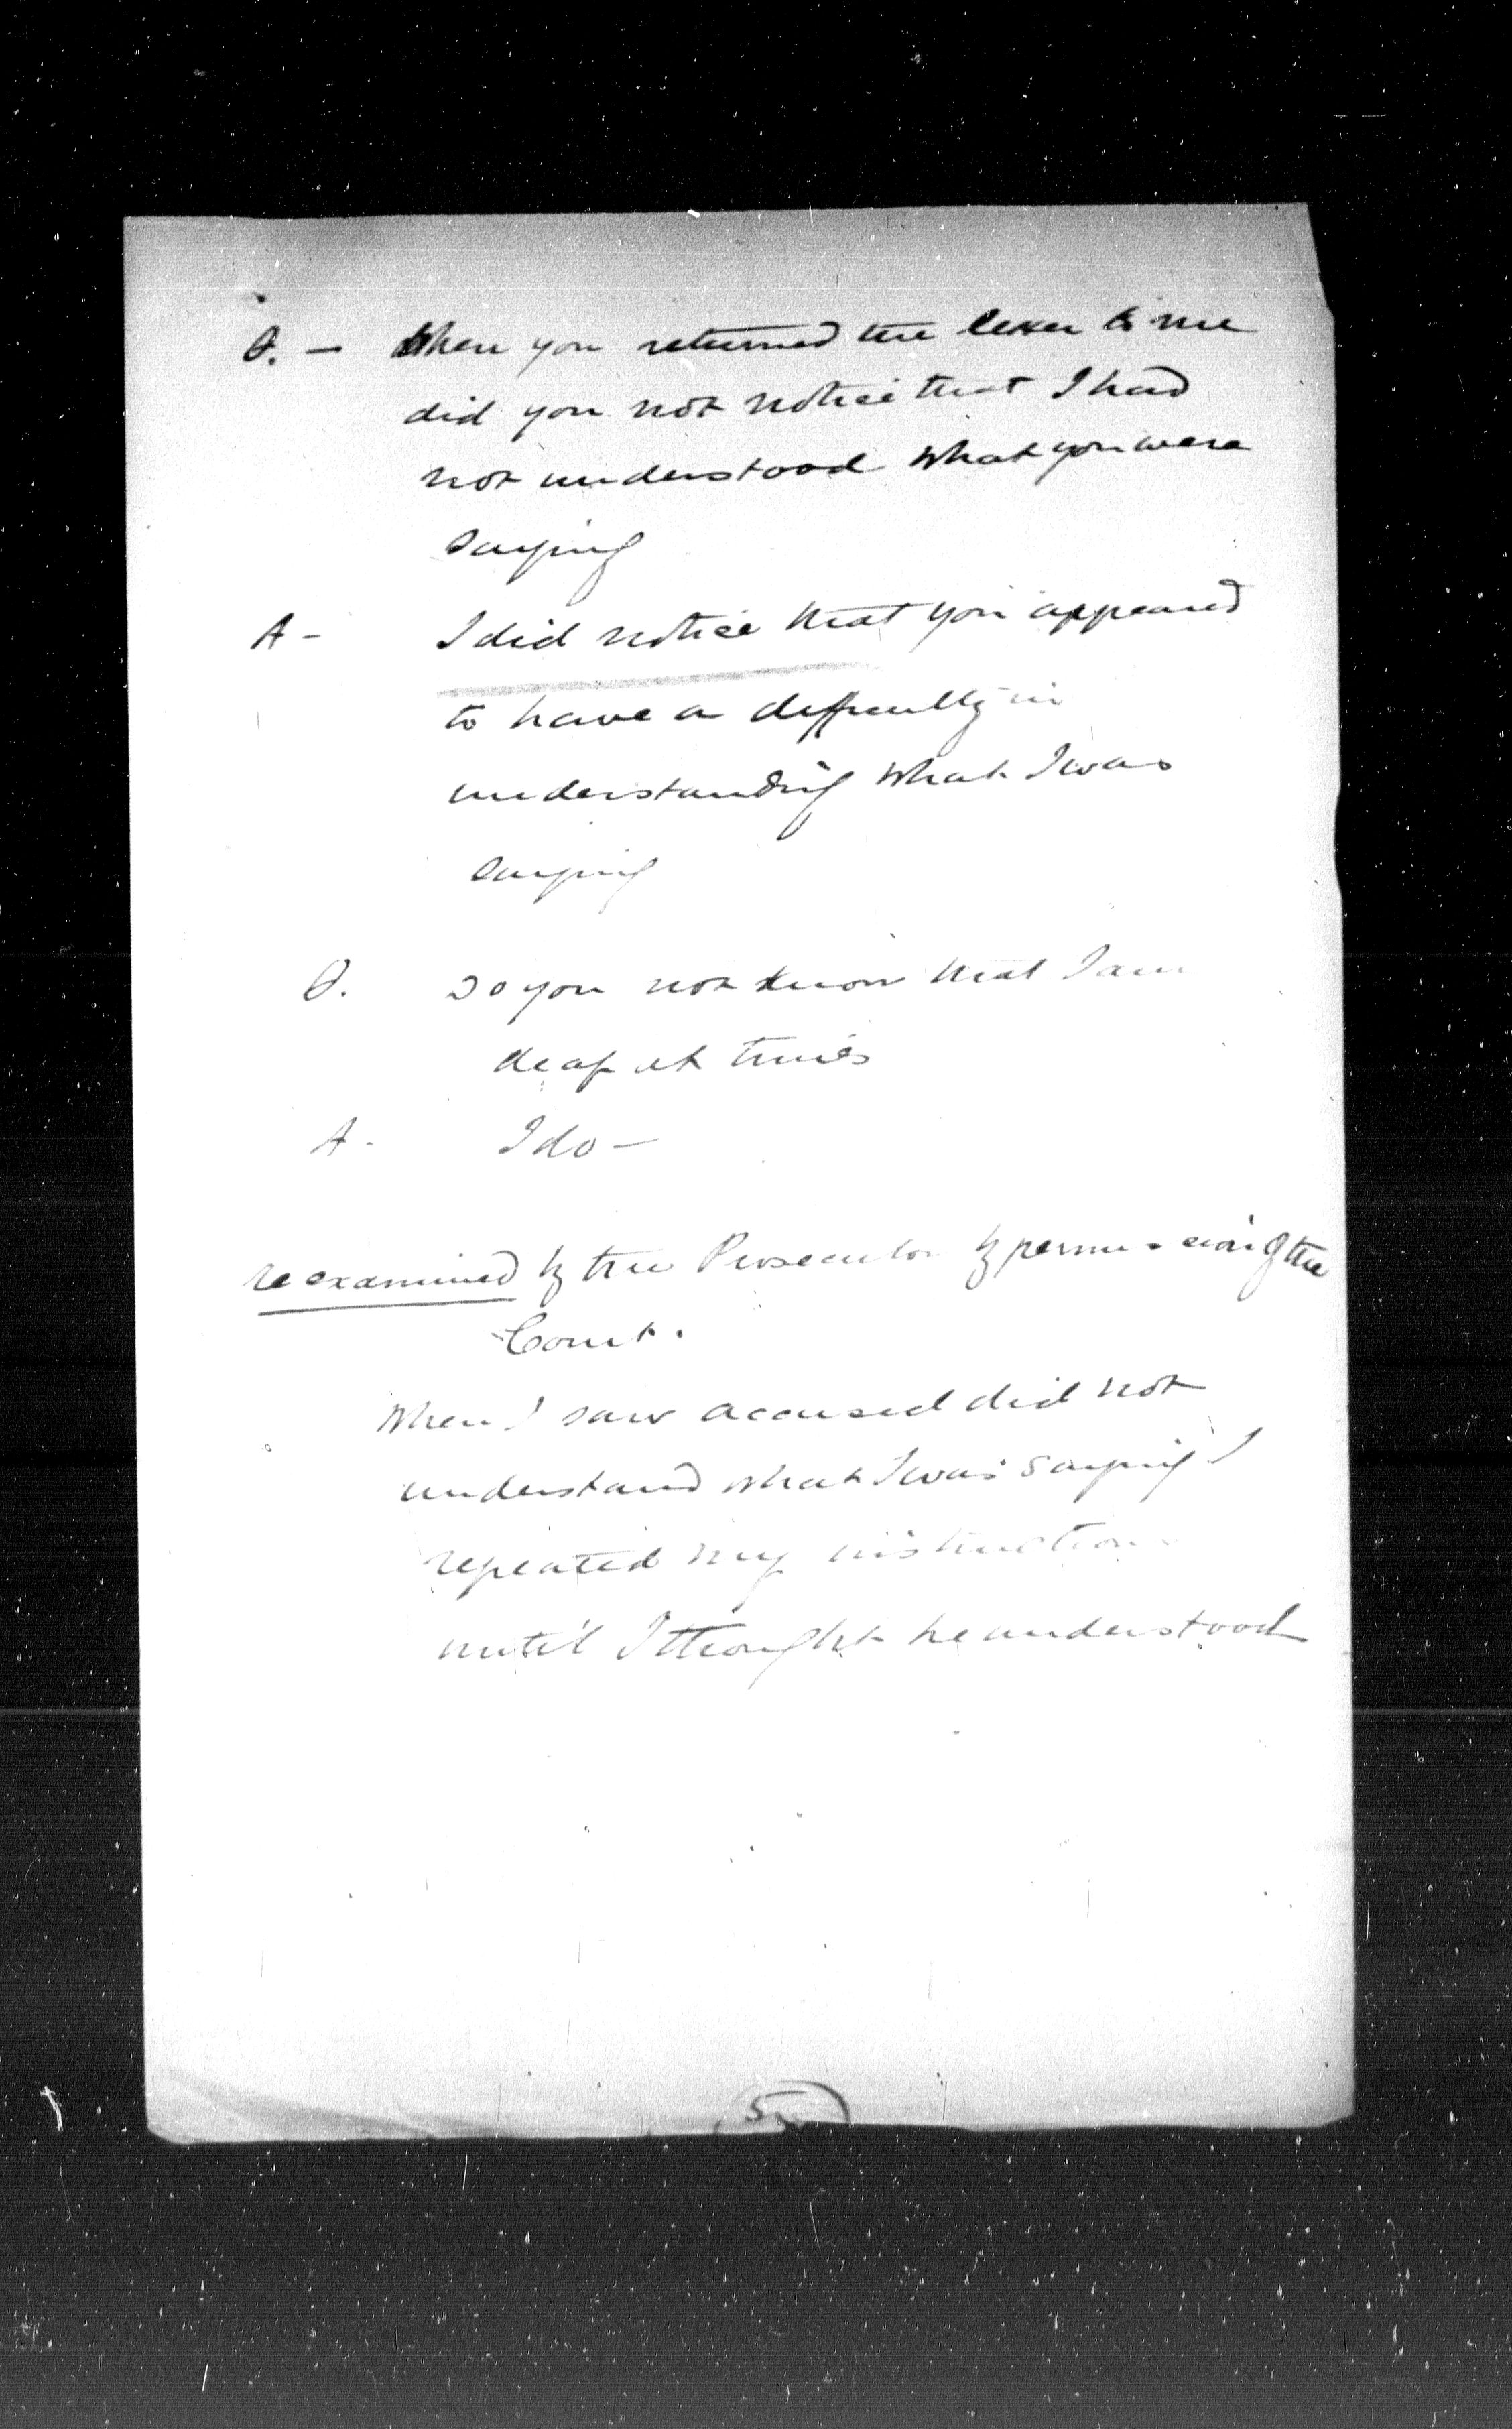 Q. — When you returned the letter to me
did you not notice that I had
not understood what you were
saying
A - I did notice that you appeared
to have a difficulty in
understanding what I was
saying
Q. Do you not know that I am
deaf at times
A - I do —
re examined by the Prosecutor by permission of the
Court.
When I saw accused did not
understand what I was saying I
repeated my instructions
until I thought he understood